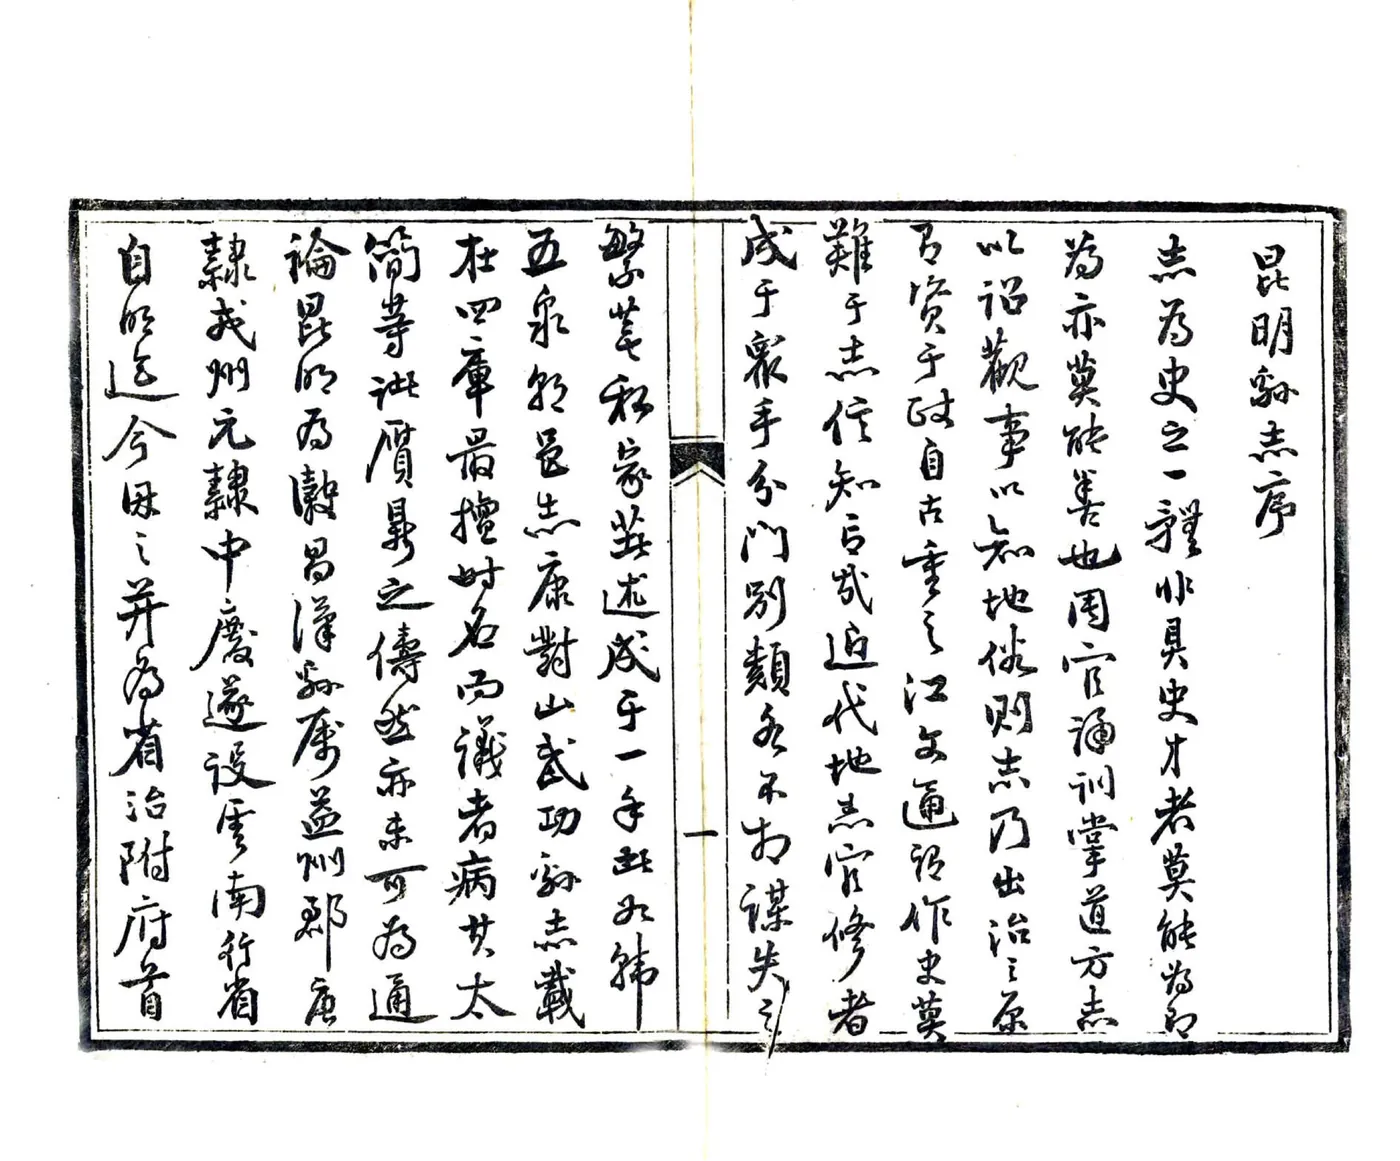 昆明縣志序
志為史之一體非具史才者莫能為即
為亦莫能善也周官誦訓掌道方志
以詔觀事以知地俗則志乃出治之原
有資于政自古重之江文通謂作史莫
難于志信知言哉近代地志官修者
成于衆手分門別類各不相謀失之
繁蕪私家葚述成于一手如韓
五泉朝邑志康對山武功縣志載
在四庫最擅時名而議者病其太
簡等訿贋鼎之儔然亦未可為通
論昆明為漢縣屬益州郡唐
隸戎州元隸中慶遂設雲南行省
自明迄今因之并為省治附府首